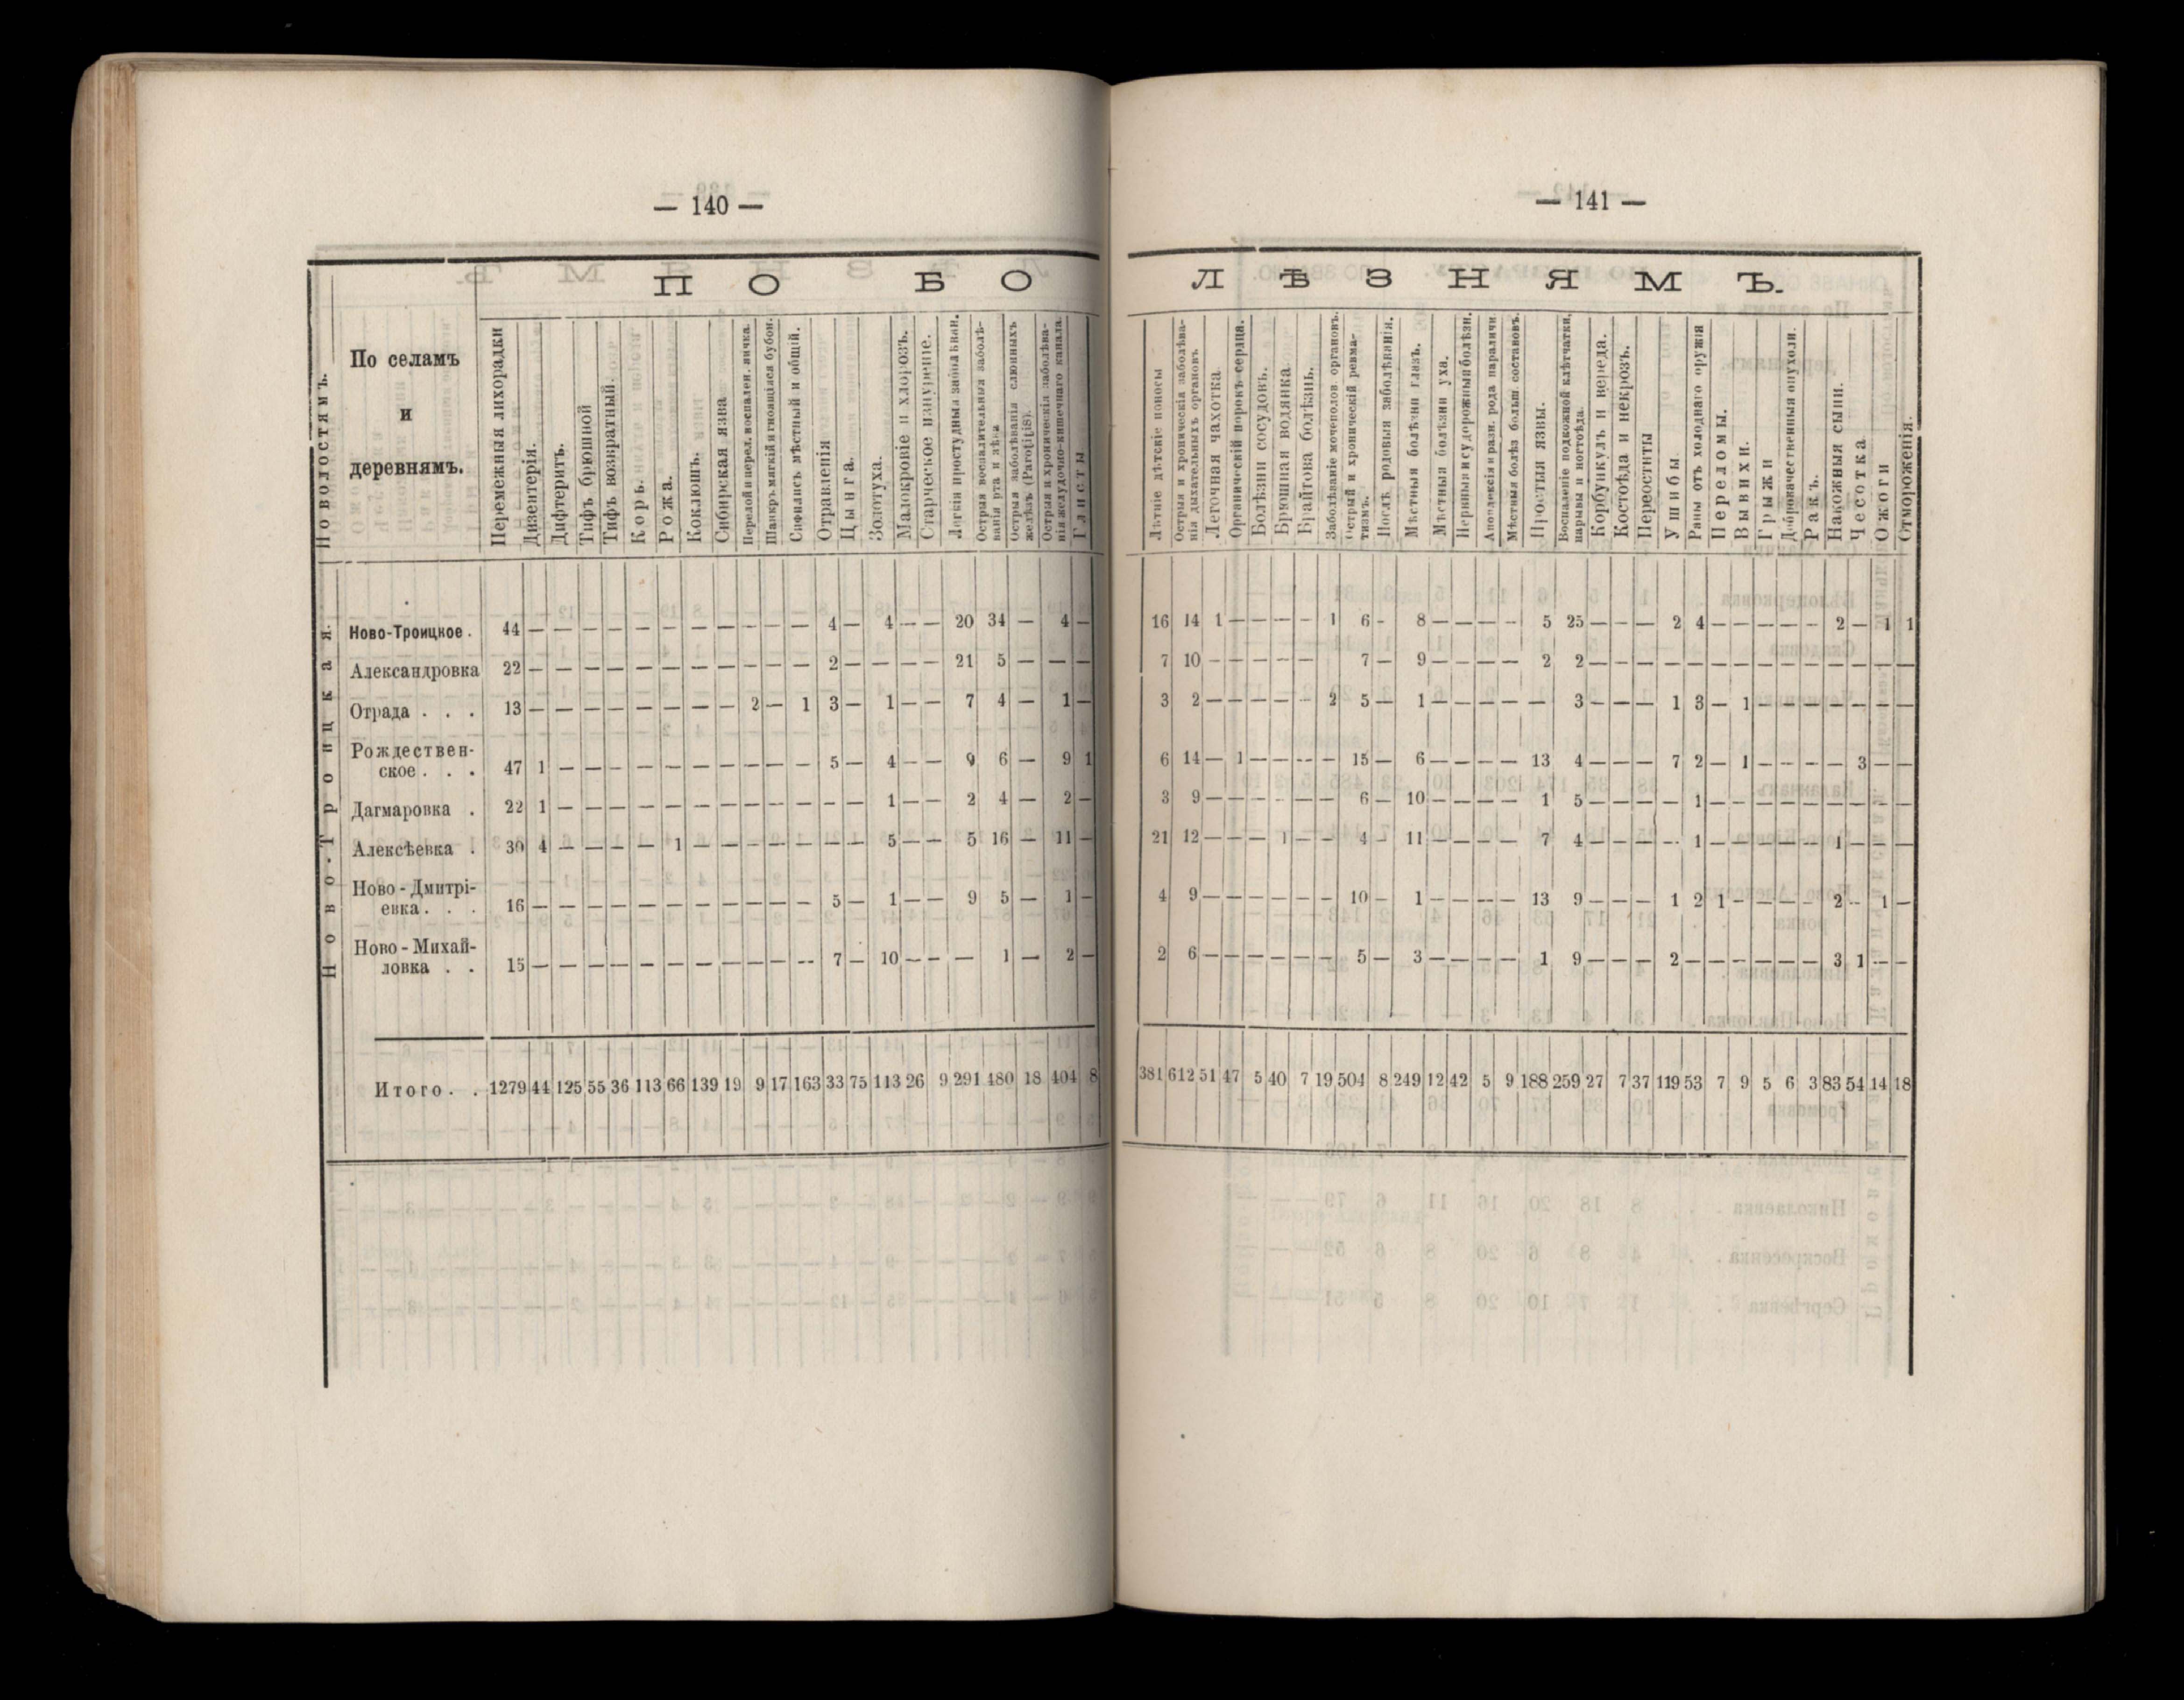 — 140 —
П О Б О
По волостямъ.
По селамъ
и
деревнямъ.
Перемежныя лихорадки
Дизентерія.
Дифтеритъ.
Тифъ брюшной
Тифъ возвратный.
Корь.
Рожа.
Коклюшъ.
Сибирская язва
Перелой и перел. воспален. яичка.
Шанкръ мягкій и гноящіася бубон.
Сифилисъ мѣстный и общій.
Отравленія
Цынга.
Золотуха.
Малокровіе и хлорозъ.
Старческое изнуреніе.
Легкія простудныя заболѣван.
Острыя воспалительныя заболѣ-
ванія рта и зѣва
Острыя заболѣванія слюнныхъ
железъ (Parotitis).
Острыя и хроническія заболѣва-
нія желудочно-кишечнаго канала.
Глисты
Ново-Троицкая.
Ново-Троицкое . 44 — — — — — — — — — — — 4 — 4 — — 20 34 — 4 —
Александровка 22 — — — — — — — — — — — 2 — — — — 21 5 — — —
Отрада . . . 13 — — — — — — — — 2 — 1 3 — 1 — — 7 4 — 1 —
Рождествен-
ское . . . 47 1 — — — — — — — — — — 5 — 4 — — 9 6 — 9 1
Дагмаровка . 22 1 — — — — — — — — — — — — 1 — — 2 4 — 2 —
Алексѣевка . 30 4 — — — — 1 — — — — — — — 5 — — 5 16 — 11 —
Ново - Дмитрі-
евка . . . 16 — — — — — — — — — — — 5 — 1 — — 9 5 — 1 —
Ново - Михай-
ловка . . 15 — — — — — — — — — — — 7 — 10 — — — 1 — 2 —
Итого . . 1279 44 125 55 36 113 66 139 19 9 17 163 33 75 113 26 9 291 480 18 404 8
— 141 —
Л Ѣ З Н Я М Ъ.
Лѣтніе дѣтскіе поносы
Острыя и хроническія заболѣва-
нія дыхательныхъ органовъ
Легочная чахотка.
Органическій порокъ сердца.
Болѣзни сосудовъ.
Брюшная водянка.
Брайтова болѣзнь.
Заболѣваніе мочеполов. органовъ.
Острый и хроническій ревма-
тизмъ.
Послѣ родовыя заболѣванія.
Мѣстныя болѣзни глазъ.
Мѣстныя болѣзни уха.
Нервныя и судорожныя болѣзн.
Апоплексія и разн. рода параличи
Мѣстныя болѣз больш. составовъ.
Простыя язвы.
Воспаленіе подкожной клѣтчатки,
нарывы и ногтоѣда.
Корбункулъ и вереда.
Костоѣда и некрозъ.
Переоститы
Ушибы
Раны отъ холоднаго оружія
Переломы.
Вывихи.
Грыжи
Доброкачественныя опухоли.
Ракъ.
Накожныя сыпи.
Чесотка
Ожоги
Отмороженія.
16 14 1 — — — — 1 6 — 8 — — — — 5 25 — — — 2 4 — — — — — 2 — 1 1
7 10 — — — — — 7 — 9 — — — — 2 2 — — — — — — — — — — — — — —
3 2 — — — — — 2 5 — 1 — — — — — 3 — — — 1 3 — 1 — — — — — — —
6 14 — 1 — — — — 15 — 6 — — — — 13 4 — — — 7 2 — 1 — — — — 3 — —
3 9 — — — — — — 6 — 10 — — — — 1 5 — — — — 1 — — — — — — — — —
21 12 — — — 1 — — 4 — 11 — — — — 7 4 — — — — 1 — — — — — 1 — — —
4 9 — — — — — — 10 — 1 — — — — 13 9 — — — 1 2 1 — — — — 2 — 1 —
2 6 — — — — — — 5 — 3 — — — — 1 9 — — — 2 — — — — — — 3 1 — —
381 612 51 47 5 40 7 19 504 8 249 12 42 5 9 188 259 27 7 37 119 53 7 9 5 6 3 83 54 14 18